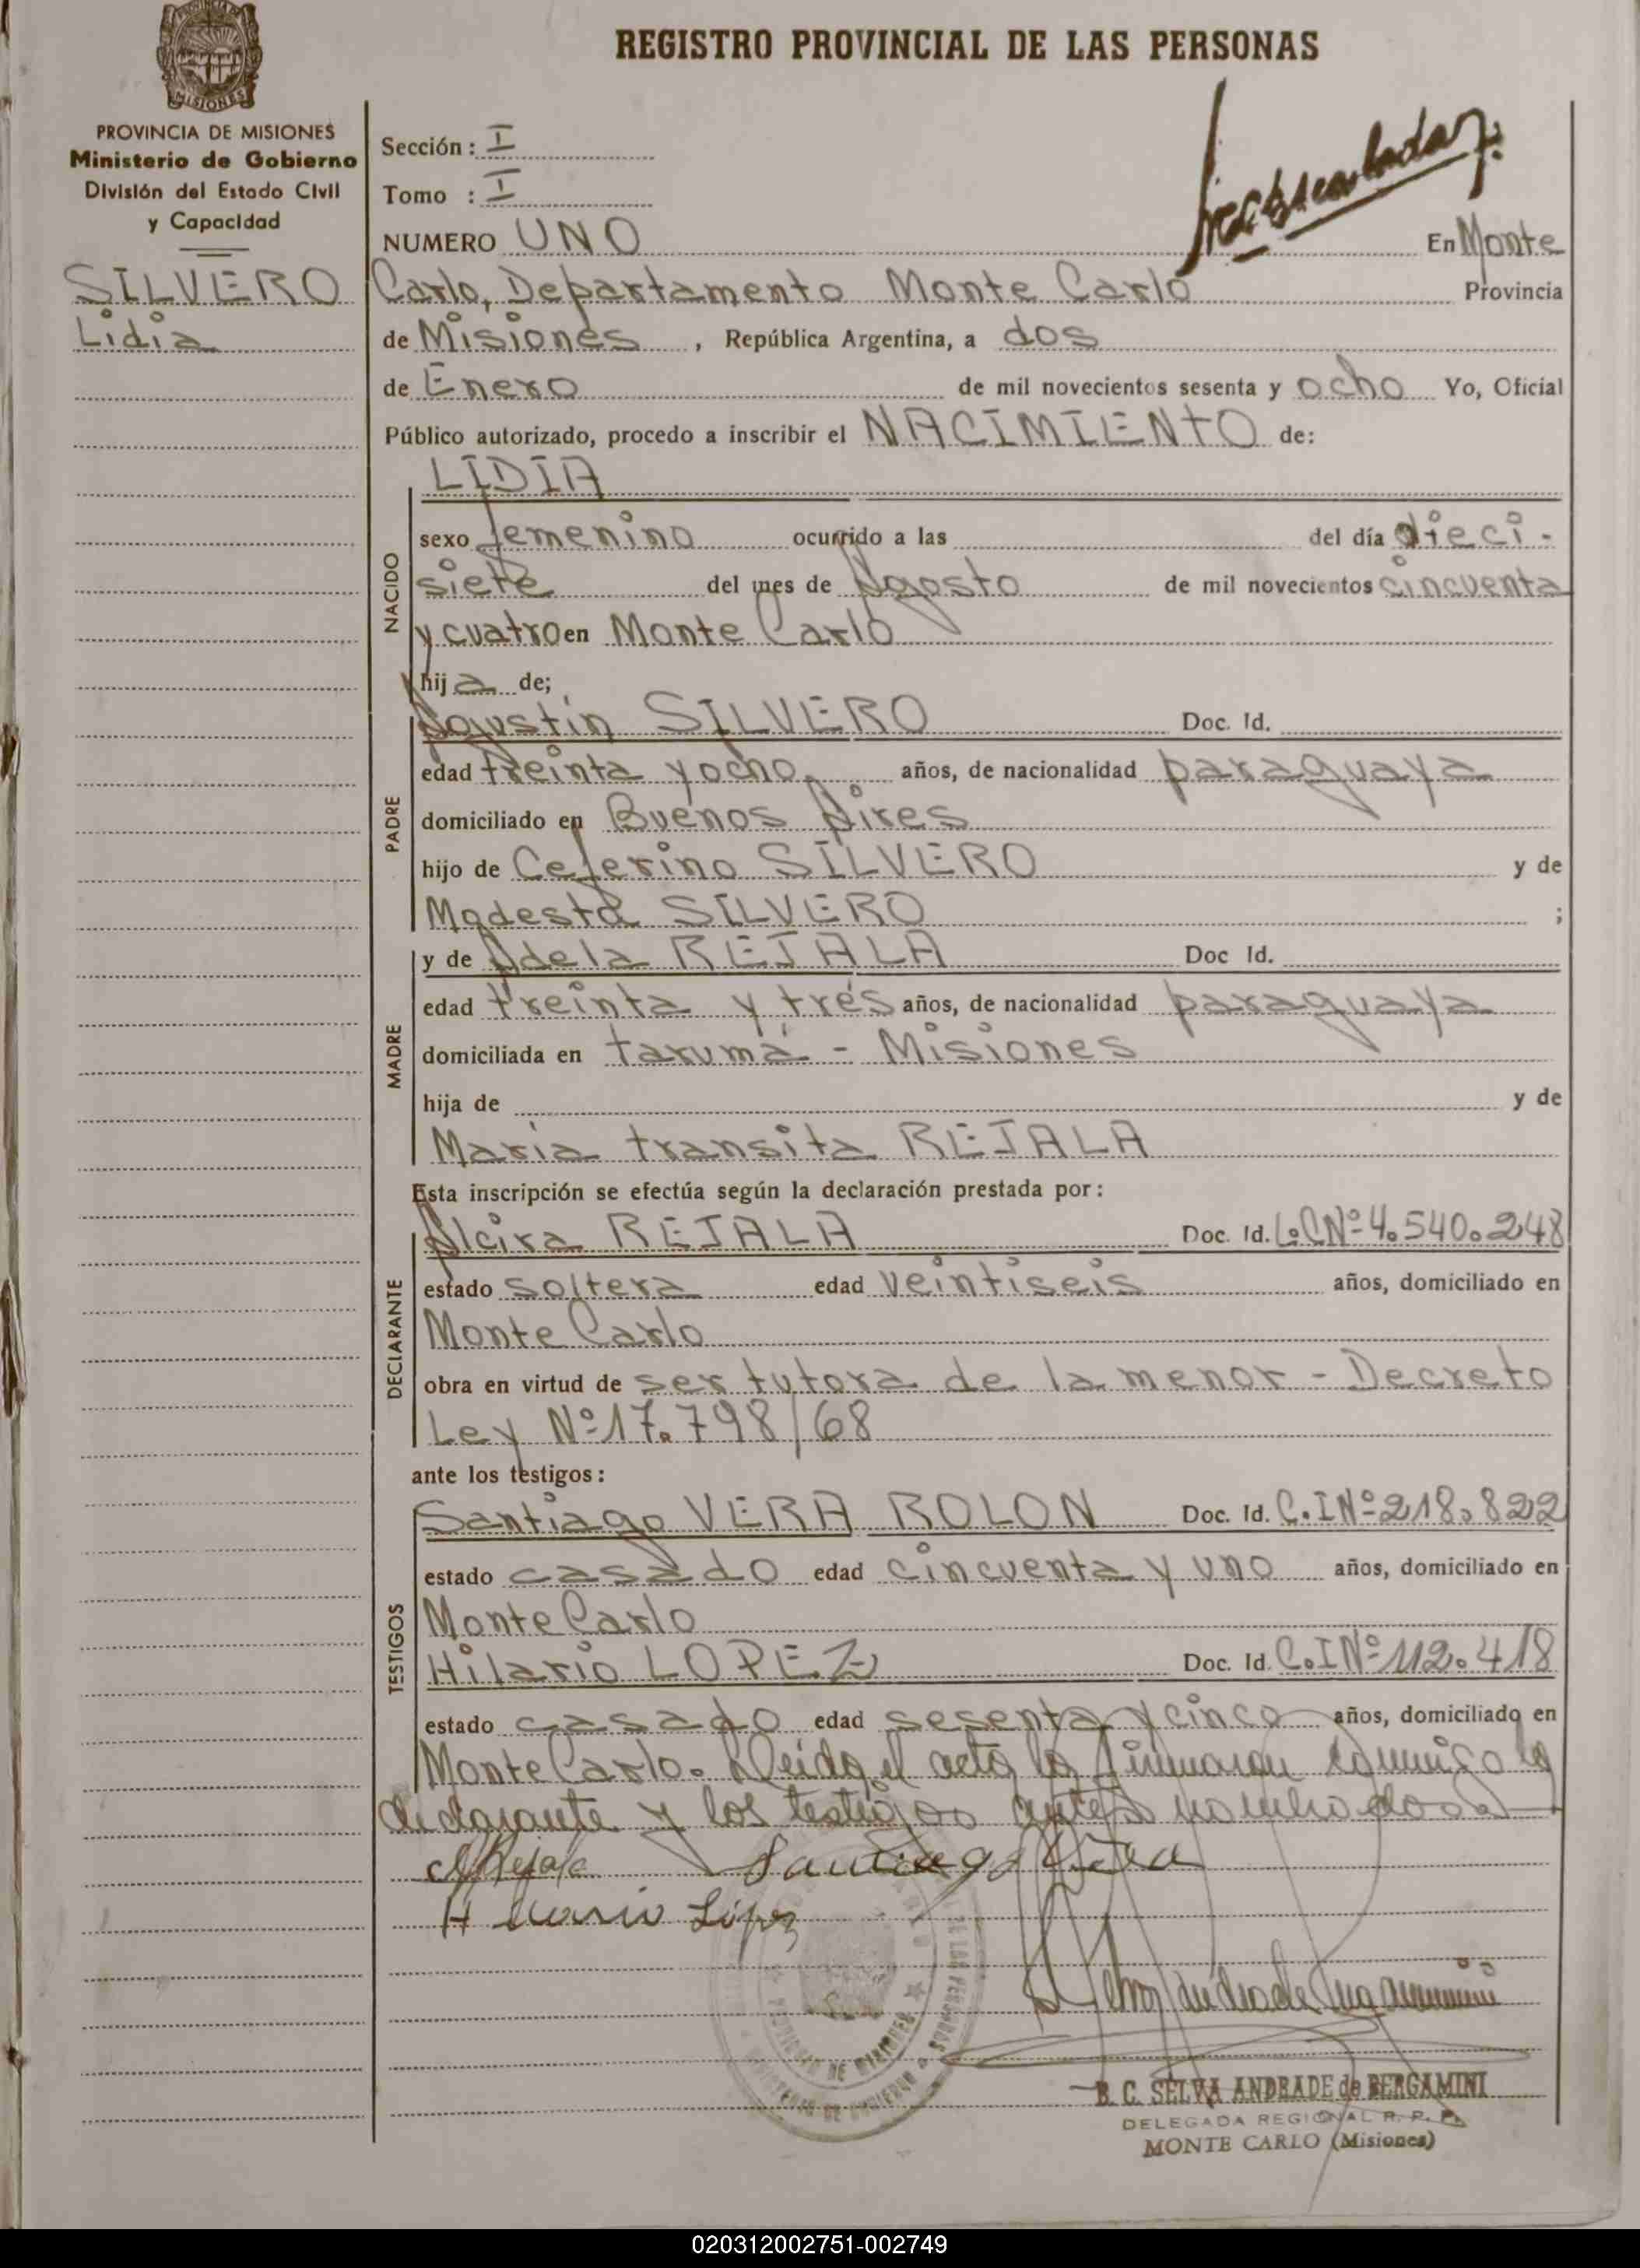 REGISTRO PROVINCIAL DE LAS PERSONAS
MISIONES
PROVINCIA DE MISIONES
Ministerio de Gobierno
División del Estado Civil
y Capacidad
SILVERO
Lidia
Sección : I
Tomo : I
NUMERO UNO En Monte
Carlo, Departamento Monte Carlo Provincia
de Misiones , República Argentina, a dos
de Enero de mil novecientos sesenta y ocho Yo, Oficial
Público autorizado, procedo a inscribir el NACIMIENTO de:
LIDIA
NACIDO
sexo femenino ocurrido a las del día dieci-
siete del mes de Agosto de mil novecientos cincuenta
y cuatro en Monte Carlo
hija de;
PADRE
Agustin SILVERO Doc. Id.
edad treinta y ocho años, de nacionalidad paraguaya
domiciliado en Buenos Aires
hijo de Ceferino SILVERO y de
Modesta SILVERO ;
MADRE
y de Adela REJALA Doc Id.
edad treinta y tres años, de nacionalidad paraguaya
domiciliada en tarumá - Misiones
hija de y de
Maria transita REJALA
Esta inscripción se efectúa según la declaración prestada por :
DECLARANTE
Alcira REJALA Doc. Id. L.C Nº 4.540.248
estado soltera edad veintiseis años, domiciliado en
Monte Carlo
obra en virtud de ser tutora de la menor - Decreto
Ley Nº 17.798/68
ante los testigos :
TESTIGOS
Santiago VERA ROLON Doc. Id. C.I Nº 218.822
estado casado edad cincuenta y uno años, domiciliado en
Monte Carlo
Hilario LOPEZ Doc. Id. C.I Nº 112.418
estado casado edad sesenta y cinco años, domiciliado en
Monte Carlo. Leida el acta la firmaron conmigo la
declarante y los testigos antes nombrados.
ARejala Santiago Vera
H Lopez
B. C. SELVA ANDRADE de BERGAMINI
DELEGADA REGIONAL R. P. P.
MONTE CARLO (Misiones)
020312002751-002749